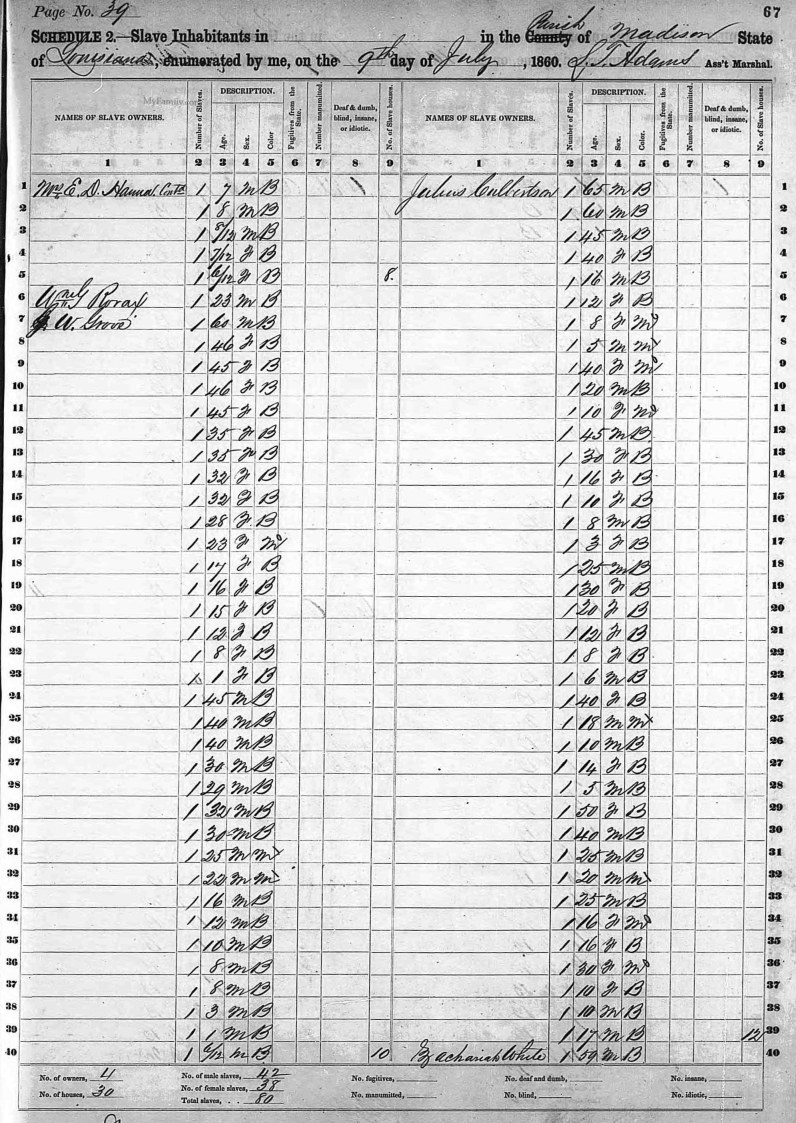 Page No. 39
67
SCHEDULE 2.—Slave Inhabitants in in the County Parish of Madison State
of Louisiana, enumerated by me, on the 9th day of July, 1860. Adams Ass't Marshal.
MyFamily.com
NAMES OF SLAVE OWNERS. Number of Slaves. DESCRIPTION. Age. Sex. Color Fugitives from the State. Number manumitted. Deaf & dumb, blind, insane, or idiotic. No. of Slave houses. NAMES OF SLAVE OWNERS. Number of Slaves. DESCRIPTION. Age. Sex. Color. Fugitives from the State. Number manumitted. Deaf & dumb, blind, insane, or idiotic. No. of Slave houses.
1 2 3 4 5 6 7 8 9 1 2 3 4 5 6 7 8 9
1 Mrs E. D. Hanna Contd 1 7 M B Julius Culbertson 1 65 M B 1
2 1 8 M B 1 60 M B 2
3 1 8/12 M B 1 45 M B 3
4 1 7/12 F B 1 40 F B 4
5 1 6/12 F B 8. 1 16 M B 5
6 1 23 M B 1 12 F B 6
7 W. Groves 1 60 M B 1 8 F M 7
8 1 46 F B 1 5 M M 8
9 1 45 F B 1 40 F M 9
10 1 46 F B 1 20 M B 10
11 1 45 F B 1 10 F M 11
12 1 35 F B 1 45 M B 12
13 1 35 F B 1 30 F B 13
14 1 32 F B 1 16 F B 14
15 1 32 F B 1 10 F B 15
16 1 28 F B 1 8 M B 16
17 1 23 F M 1 3 F B 17
18 1 17 F B 1 25 M B 18
19 1 16 F B 1 30 F B 19
20 1 15 F B 1 20 F B 20
21 1 12 F B 1 12 F B 21
22 1 8 F B 1 8 F B 22
23 1 1 F B 1 6 M B 23
24 1 45 M B 1 40 F B 24
25 1 40 M B 1 18 M M 25
26 1 40 M B 1 10 M B 26
27 1 30 M B 1 14 F B 27
28 1 29 M B 1 5 M B 28
29 1 32 M B 1 50 F B 29
30 1 30 M B 1 40 M B 30
31 1 25 M M 1 25 M B 31
32 1 22 M M 1 20 M M 32
33 1 16 M B 1 25 M B 33
34 1 12 M B 1 16 F M 34
35 1 10 M B 1 16 F B 35
36 1 8 M B 1 30 F M 36
37 1 8 M B 1 10 F B 37
38 1 3 M B 1 10 M B 38
39 1 1 M B 1 17 M B 12 39
40 1 6/12 M B 10 Zachariah White 1 59 M B 40
No. of owners, 4 No. of male slaves, 42 No. fugitives, No. of deaf and dumb, No. insane,
No. of houses, 30 No. of female slaves, 38 No. manumitted, No. blind, No. idiotic,
Total slaves, 80